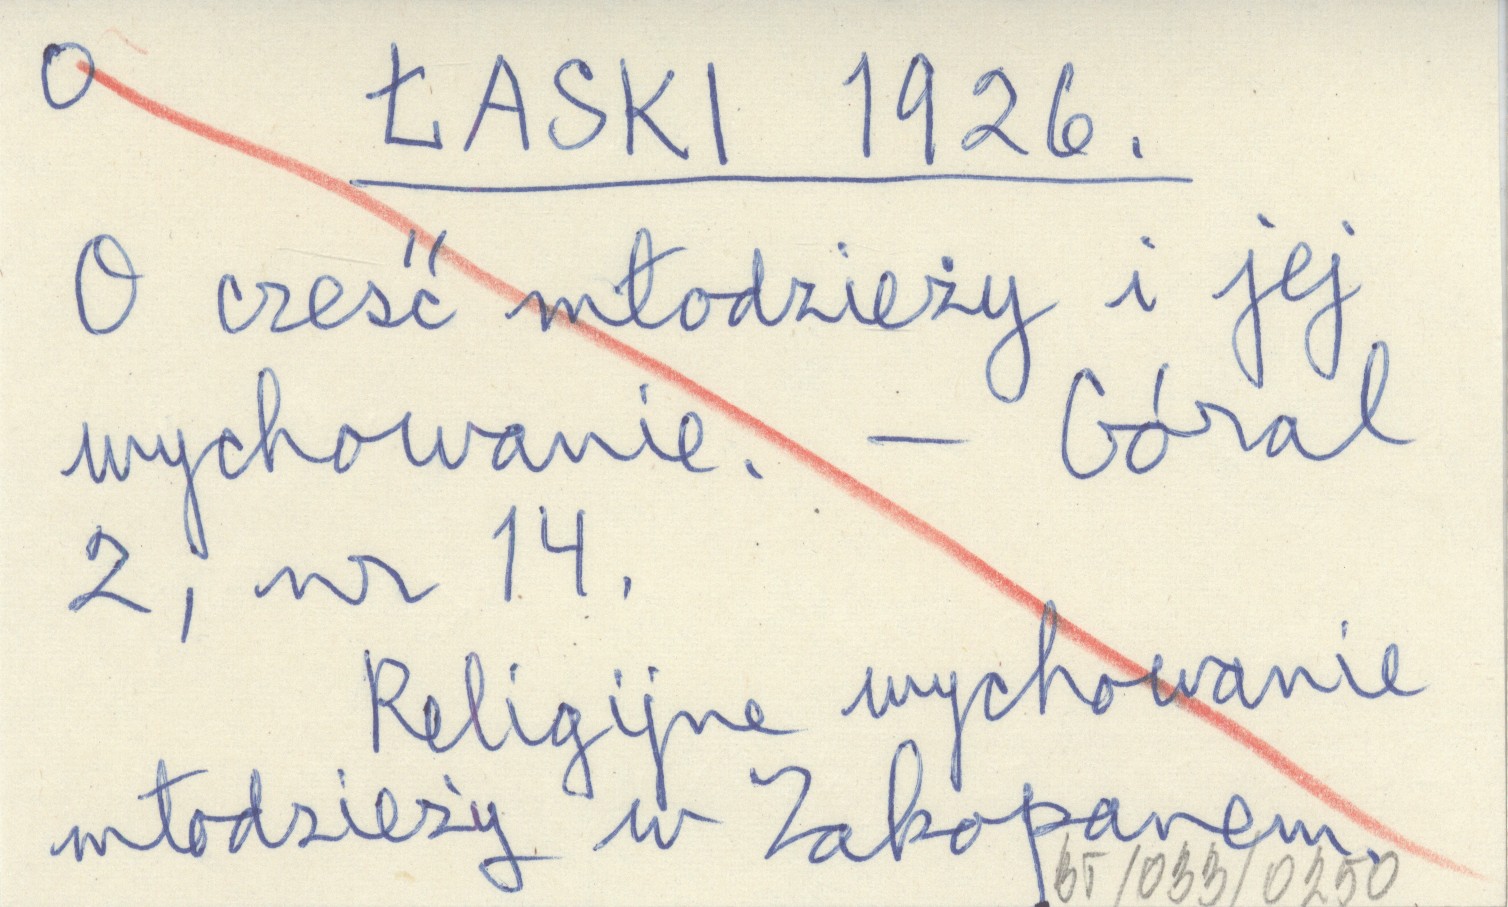 O ŁASKI 1926.
O cześć młodzieży i jej
wychowanie. — Góral
2, nr 14.
Religijne wychowanie
młodzieży w Zakopanem.
BT/033/0250